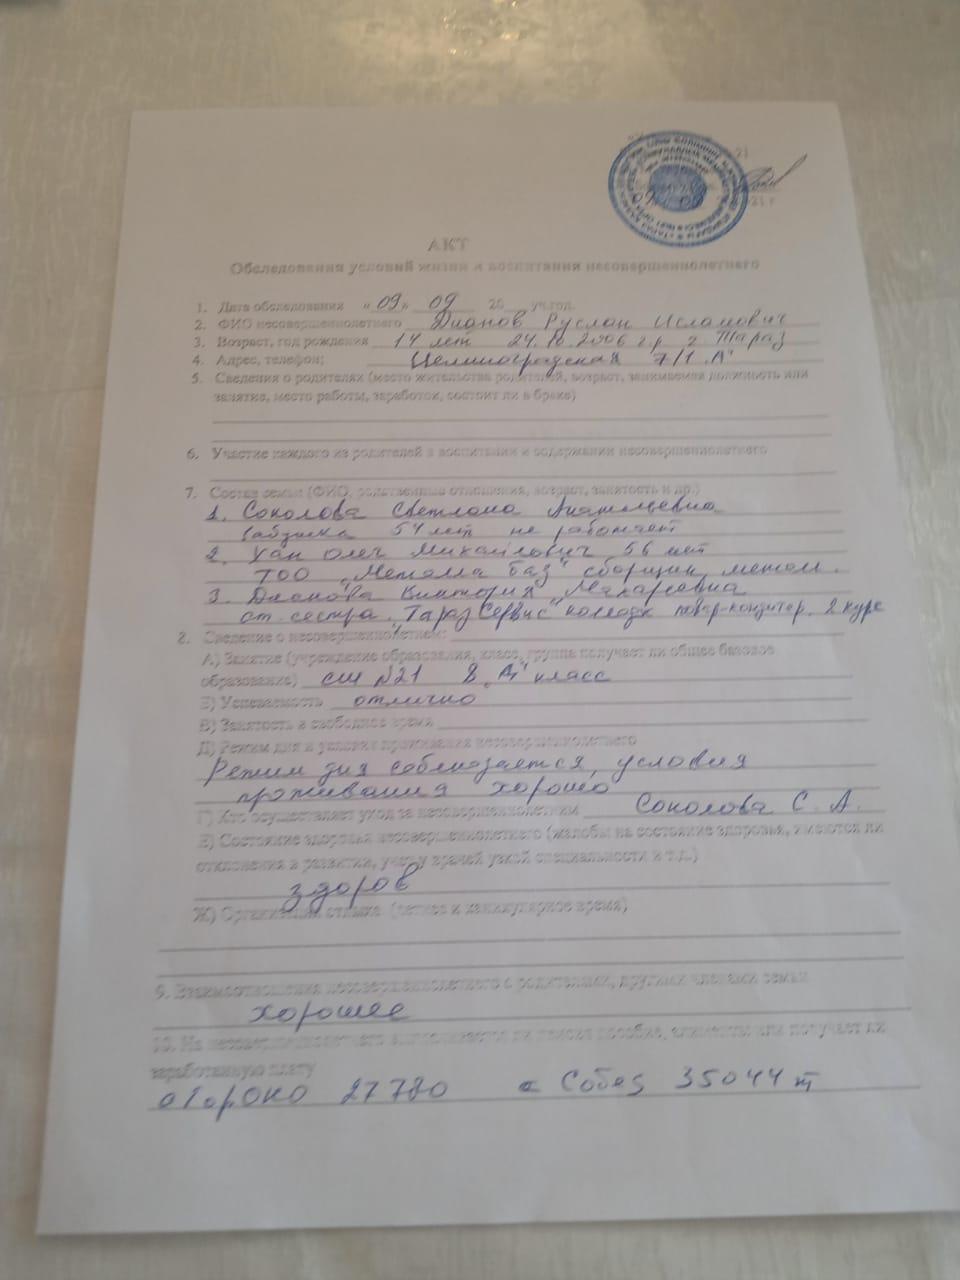 21
21 г
АКТ
Обследования условий жизни и воспитания несовершеннолетнего
1. Дата обследования «09» 09 20 уч.год.
2. ФИО несовершеннолетнего Дианов Руслан Исламович
3. Возраст, год рождения 14 лет 24.10.2006 г.р г. Тараз
4. Адрес, телефон; Целиноградская 7/1 "А"
5. Сведения о родителях (место жительства родителей, возраст, занимаемая должность или
занятие, место работы, заработок, состоит ли в браке)
6. Участие каждого из родителей в воспитании и содержании несовершеннолетнего
7. Состав семьи (ФИО, родственные отношения, возраст, занятость и др.)
1. Соколова Светлана Анатольевна
бабушка 54 лет не работает
2. Хан Олег Михайлович 56 лет
ТОО "Металла баз" сборщик металл.
3. Дианова Виктория Макаровна
ст. сестра. "Тараз Сервис" колледж повар-кондитер. 2 курс
8. Сведение о несовершеннолетнем:
А) Занятие (учреждение образования, класс, группа получает ли общее базовое
образование) сш №21 8 "А" класс
Б) Успеваемость отлично
В) Занятость в свободное время
Д) Режим дня и условия проживания несовершеннолетнего
Режим дня соблюдается, условия
проживания хорошо
Г) Кто осуществляет уход за несовершеннолетним Соколова С. А.
Е) Состояние здоровья несовершеннолетнего (жалобы на состояние здоровья, имеются ли
отклонения в развитии, учет у врачей узкой специальности и т.д.)
здоров
Ж) Организация отдыха (летнее и каникулярное время)
9. Взаимоотношения несовершеннолетнего с родителями, другими членами семьи
хорошее
10. На несовершеннолетнего выплачивается ли пенсия пособие, алименты или получает ли
заработанную плату
27780 Собез 35044 т